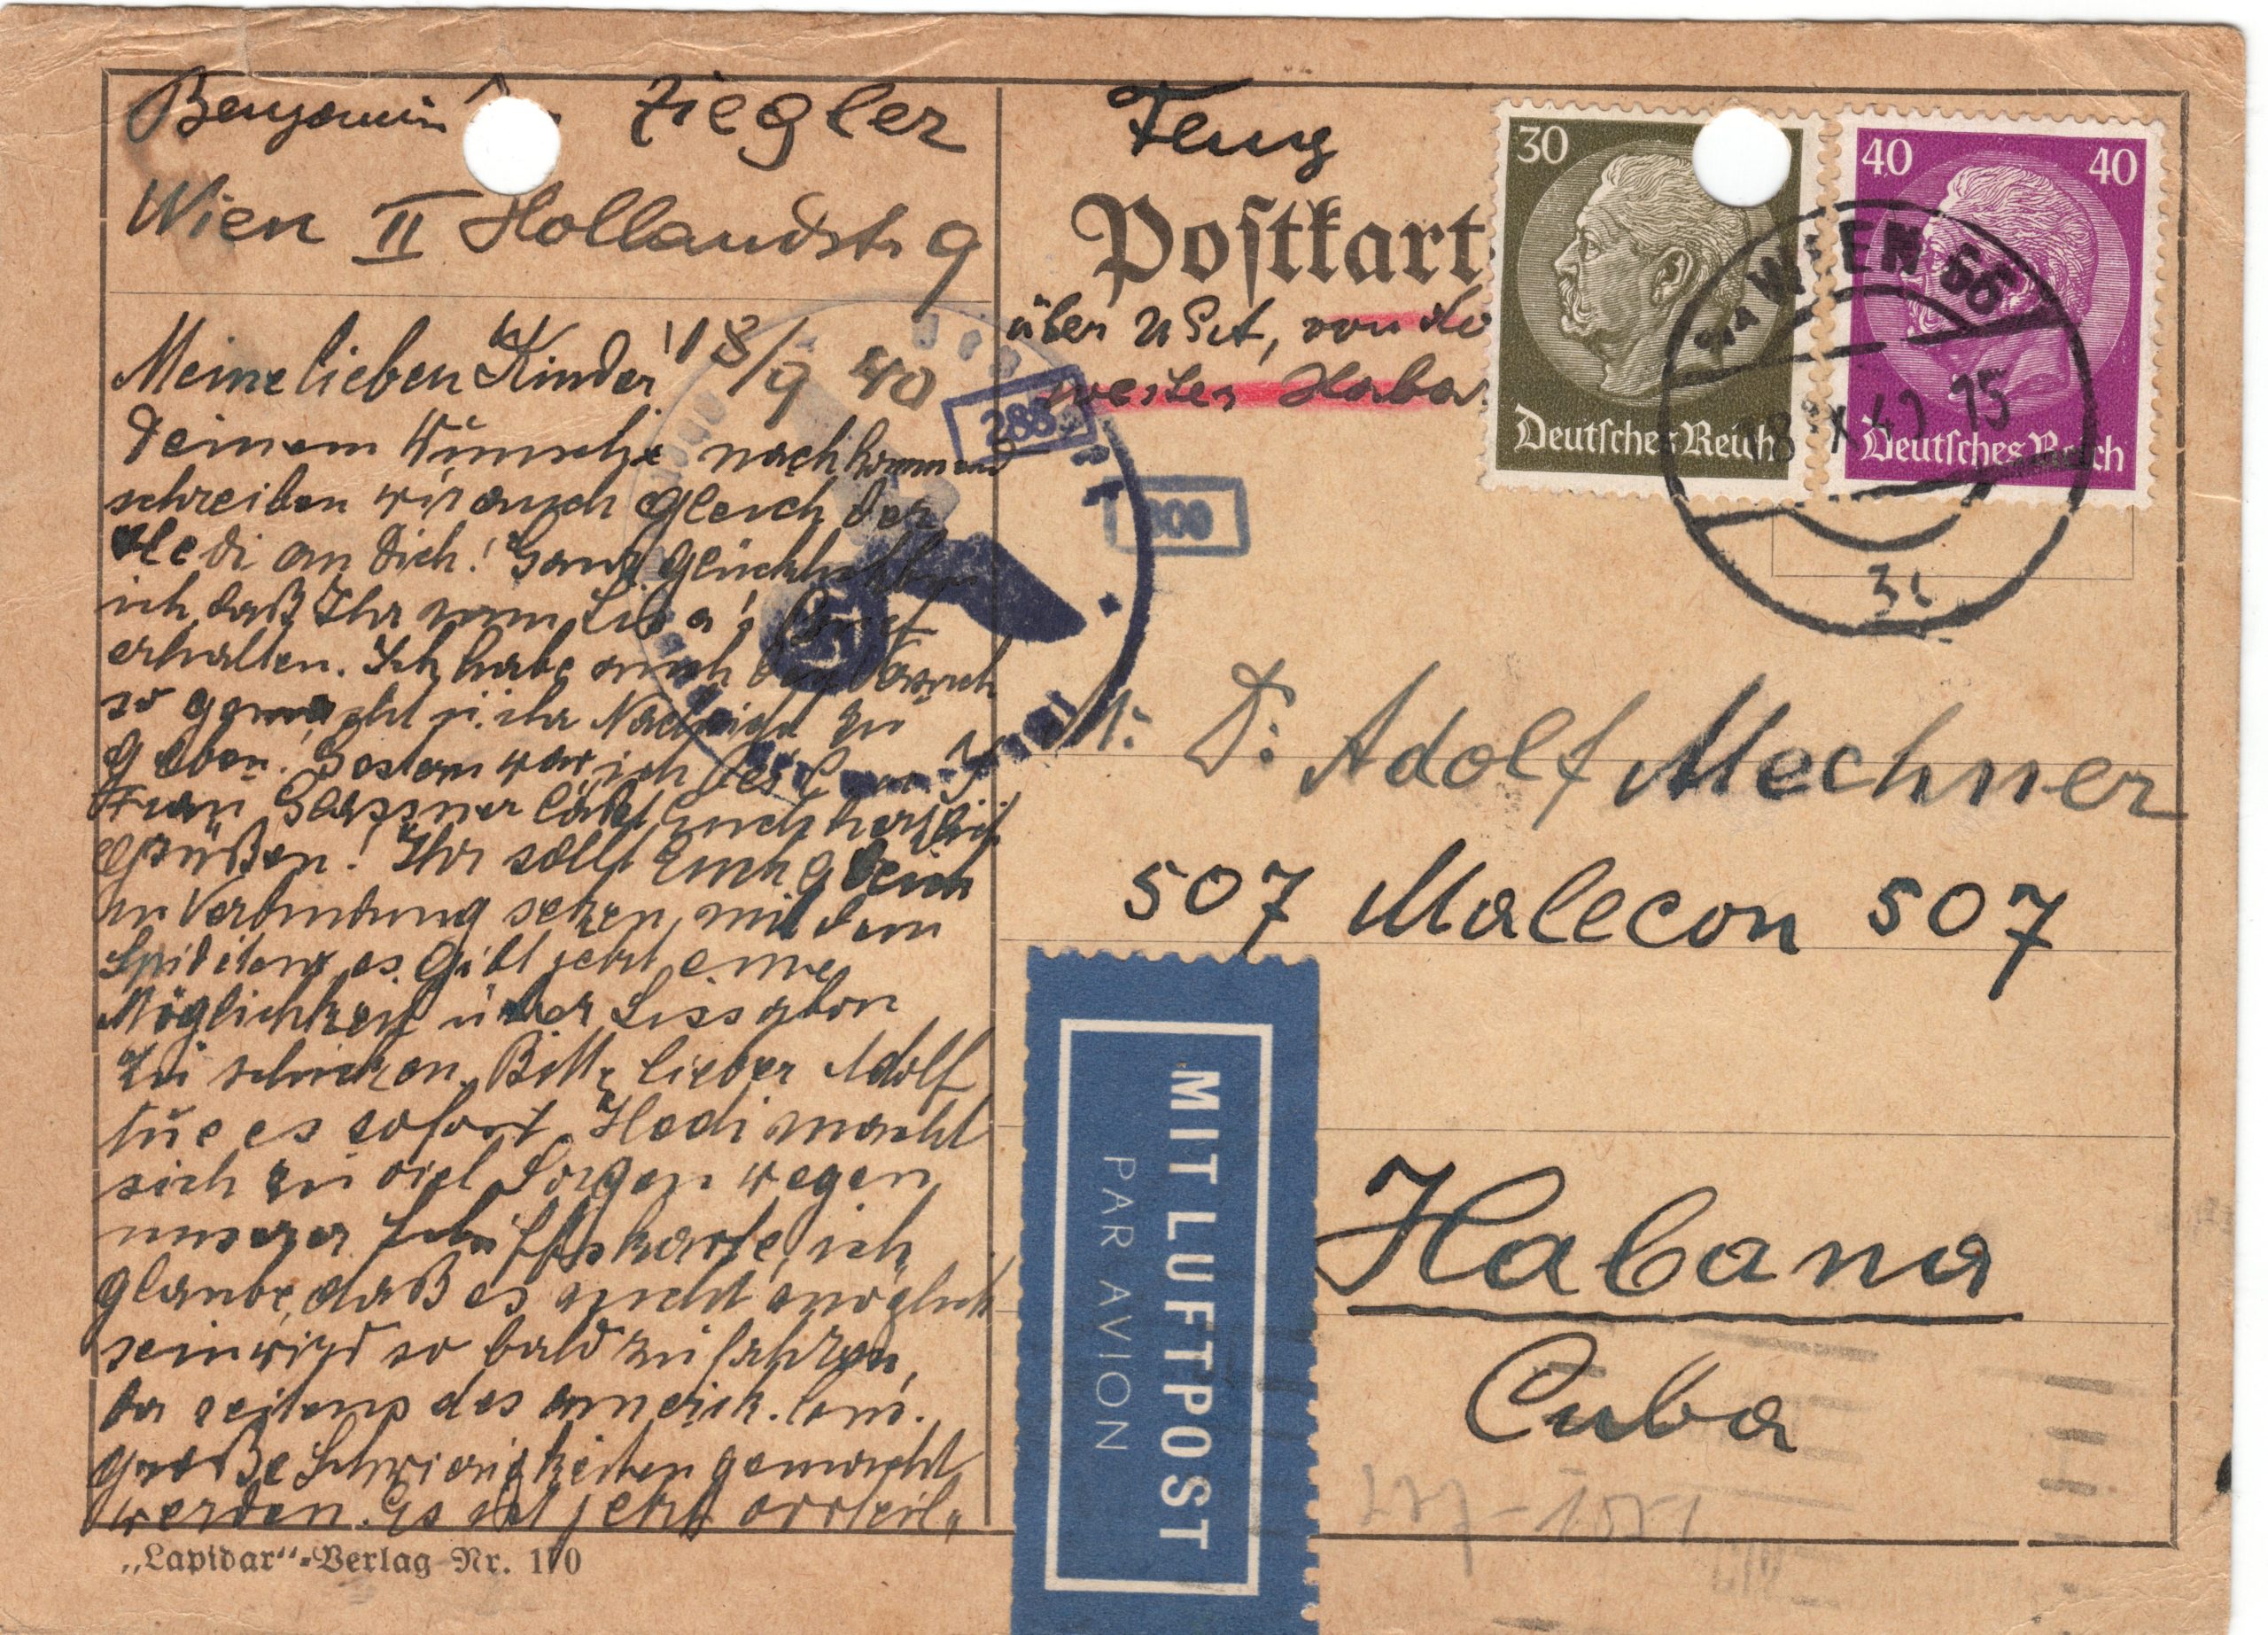 Benjamin Ziegler
Wien II Hollandstr. 9
Meine lieben Kinder! 18/9 40
Deinem Wunsche nachkommend
schreiben wir auch gleich der
Hedi an Dich! Ganz glücklich bin
ich daß Ihr vom Brief
erhalten. Ich habe auch
so gemacht u. ihr Nachricht zu
geben! Gestern war ich
Frau Glassner läßt Euch herzlich
grüßen! Ihr sollt Euch gleich
in Verbindung setzen, mit dem
Spediteur es gibt jetzt eine
Möglichkeit über Lissabon
zu schicken. Bitte lieber Adolf
tue es sofort, Hedi macht
sich zu viel Sorgen wegen
unserer Schiffskarte, ich
glaube, daß es nicht möglich
sein wird so bald zu fahren,
da seitens des amerik. Cons.
große Schwierigkeiten gemacht
werden. Es ist jetzt
„Lapidar“-Verlag Nr. 110
Flug
Postkart
über USA, von do
weiter Haba
30
Deutsches Reich
40 40
Deutsches Reich
WIEN 56
15
288
800
Dr. Adolf Mechner
507 Malecon 507
Habana
Cuba
MIT LUFTPOST
PAR AVION